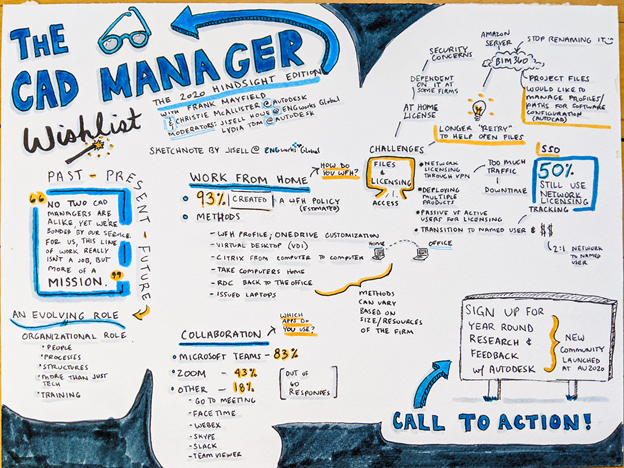 THE
CAD MANAGER
Wishlist
THE 2020 HINDSIGHT EDITION
WITH FRANK MAYFIELD
& CHRISTIE McALLISTER @ AUTODESK
MODERATORS: JISELL HOWE @ ENGWORKS GLOBAL
LYDIA TDM @ AUTODESK
SKETCHNOTE BY JISELL @ ENGWORKS Global
PAST - PRESENT - FUTURE
"NO TWO CAD
MANAGERS ARE
ALIKE, YET WE'RE
BONDED BY OUR SERVICE.
FOR US, THIS LINE
OF WORK REALLY
ISN'T A JOB, BUT
MORE OF A
MISSION."
AN EVOLVING ROLE
ORGANIZATIONAL ROLE
• PEOPLE
• PROCESSES
• STRUCTURES
• MORE THAN JUST
TECH
• TRAINING
WORK FROM HOME
HOW DO
YOU WFH?
• 93% CREATED A WFH POLICY
(ESTIMATED)
• METHODS
- WFH PROFILE; ONEDRIVE CUSTOMIZATION
- VIRTUAL DESKTOP (VDI)
- CITRIX FROM COMPUTER TO COMPUTER
HOME
OFFICE
- TAKE COMPUTERS HOME
- RDC BACK TO THE OFFICE
- ISSUED LAPTOPS
METHODS
CAN VARY
BASED ON
SIZE/RESOURCES
OF THE FIRM
COLLABORATION
WHICH
APPS DO
YOU USE?
• MICROSOFT TEAMS - 83%
• ZOOM - 43%
• OTHER - 18%
OUT OF
60
RESPONSES
• GO TO MEETING
• FACE TIME
• WEBEX
• SKYPE
• SLACK
• TEAM VIEWER
CHALLENGES
FILES
&
LICENSING
ACCESS
SECURITY
CONCERNS
DEPENDENT
ON IT AT
SOME FIRMS
AT HOME
LICENSE
AMAZON
SERVER
BIM360
STOP RENAMING IT
PROJECT FILES
WOULD LIKE TO
MANAGE PROFILES/
PATHS FOR SOFTWARE
CONFIGURATION
(AUTOCAD)
LONGER "RETRY"
TO HELP OPEN FILES
• NETWORK
LICENSING
THROUGH VPN
TOO MUCH
TRAFFIC
↓
DOWNTIME
• DEPLOYING
MULTIPLE
PRODUCTS
• PASSIVE VS ACTIVE
USERS FOR LICENSING
• TRANSITION TO NAMED USER
SSO
50%
STILL USE
NETWORK
LICENSING
TRACKING
$$
2:1 NETWORK
TO NAMED
USER
SIGN UP FOR
YEAR ROUND
RESEARCH &
FEEDBACK
W/ AUTODESK
NEW
COMMUNITY
LAUNCHED
AT AU2020
CALL TO ACTION!